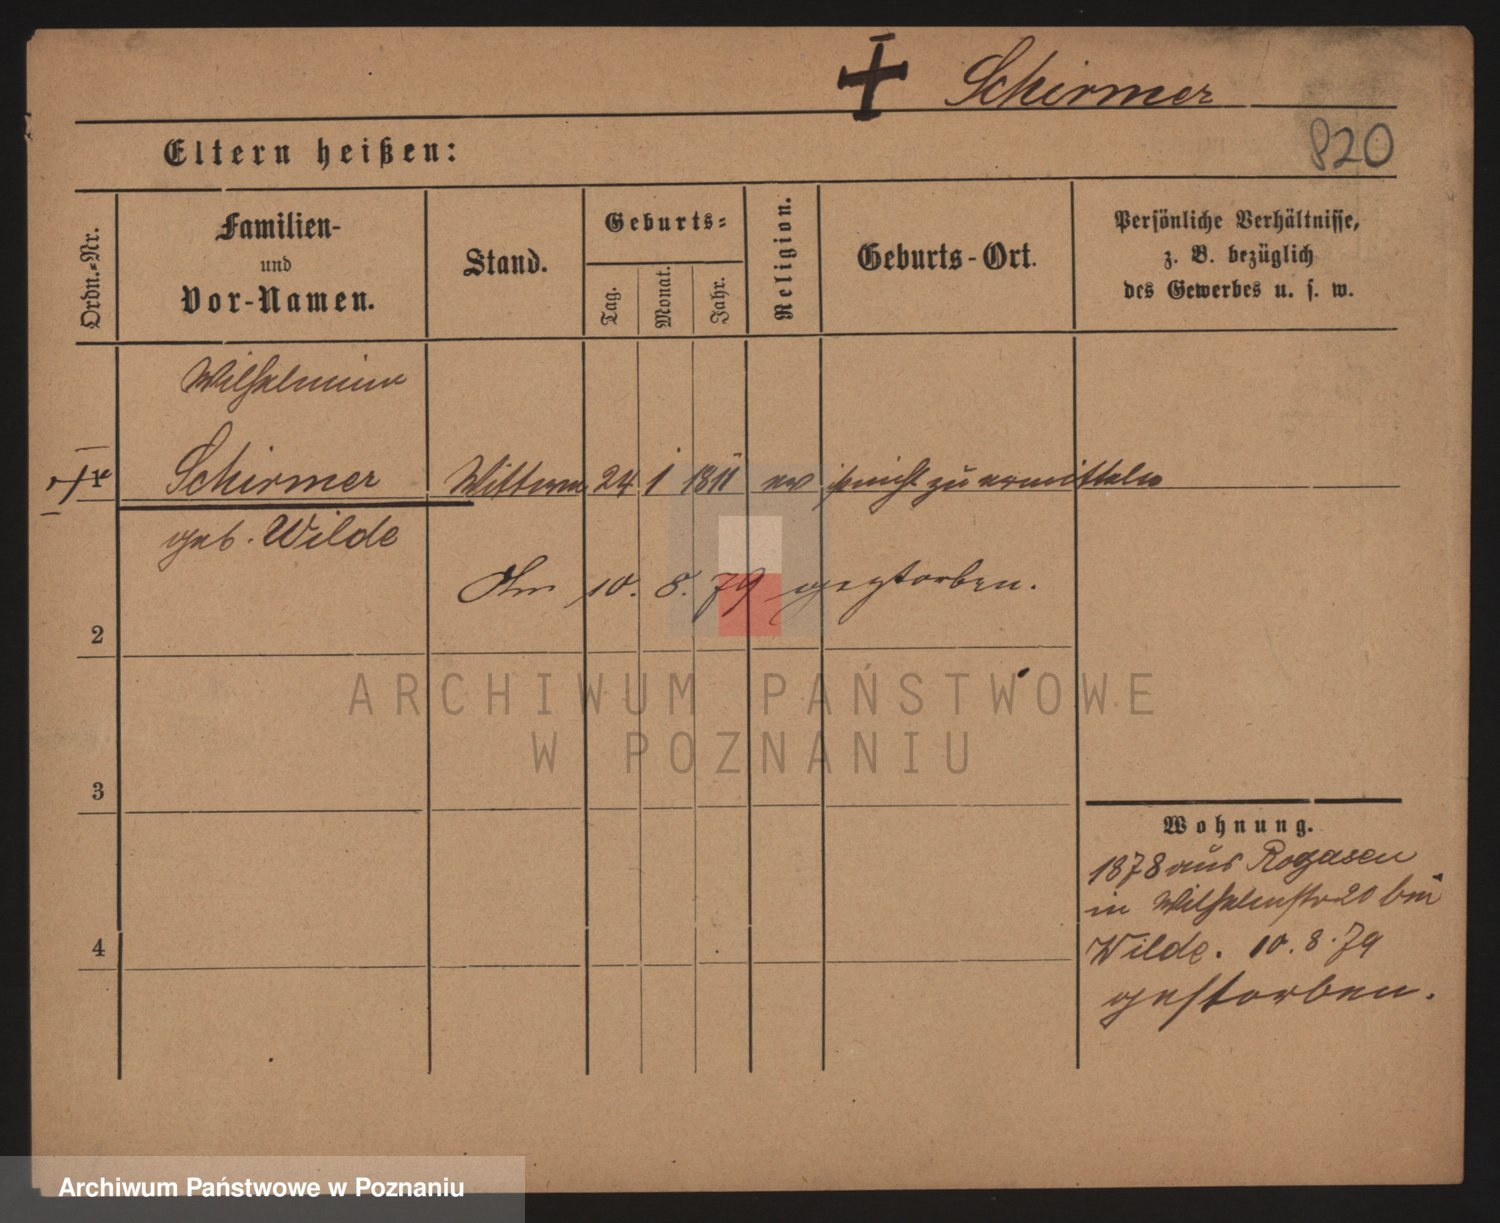 Schirmer
820
Eltern heißen:
Ordn.=Nr.
Familien-
und
Vor-Namen.
Stand.
Geburts=
Tag.
Monat.
Jahr.
Religion.
Geburts-Ort.
Persönliche Verhältnisse,
z. B. bezüglich
des Gewerbes u. s. w.
Wilhelmine
1
Schirmer Wittwe 24 1 1811 ev nicht zu ermitteln
geb. Wilde
Am 10. 8. 79 gestorben.
2
3
4
Wohnung.
1878 aus Rogasen
in Wilhelmstr 20 bei
Wilde. 10. 8. 79
gestorben.
ARCHIWUM PAŃSTWOWE
W POZNANIU
Archiwum Państwowe w Poznaniu